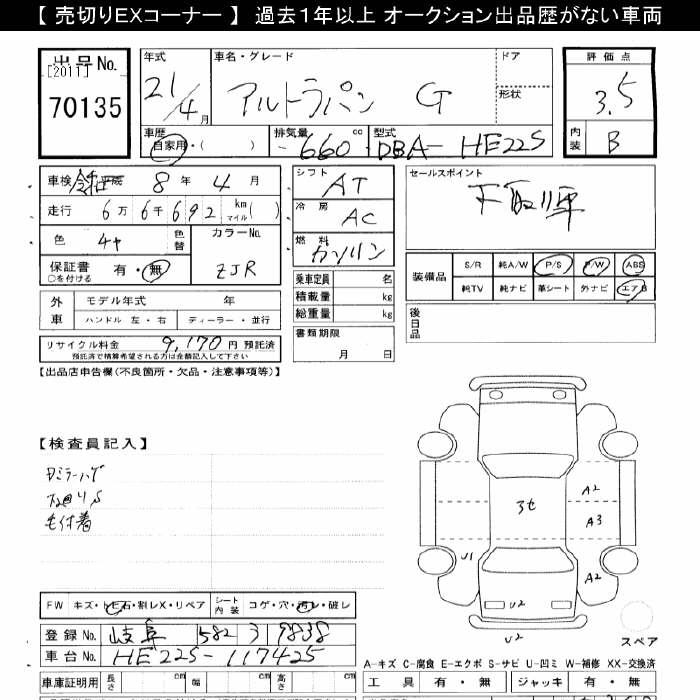 【 売切りEXコーナー 】 過去１年以上 オークション出品歴がない車両
出品No.
[2011]
70135
年式
21/4月
車名・グレード
アルトラパン G
ドア
形状
評価点
3.5
内装
B
車歴
自家用・( )
排気量
660 cc
型式
DBA- HE22S
車検 8年 4月
走行 6万 6千 692 km マイル( )
色
色替
カラーNo.
ZJR
保証書 有・無
○を付ける
シフト
AT
冷房
AC
燃料
ガソリン
乗車定員 名
積載量 kg
総重量 kg
書類期限
月 日
セールスポイント
下取り車
装備品
S/R 純A/W P/S P/W ABS
純TV 純ナビ 革シート 外ナビ エアB
後日品
外車
モデル年式 年
ハンドル 左・右 ディーラー・並行
リサイクル料金 9,170円 預託済
預託済で精算希望される方は金額記入して下さい
【出品店申告欄(不良箇所・欠品・注意事項等)】
【検査員記入】
毛付着
3セ
A2
A3
A2
U1
U2
U2
スペア
FW キズ・トビ石・割レX・リペア
シート内装 コゲ・穴・汚レ・破レ
登録No. 岐阜 582 9838
車台No. HE22S-117425
A-キズ C-腐食 E-エクボ S-サビ U-凹ミ W-補修 XX-交換済
車庫証明用 長さ cm 幅 cm 高さ cm
工具 有・無 ジャッキ 有・無